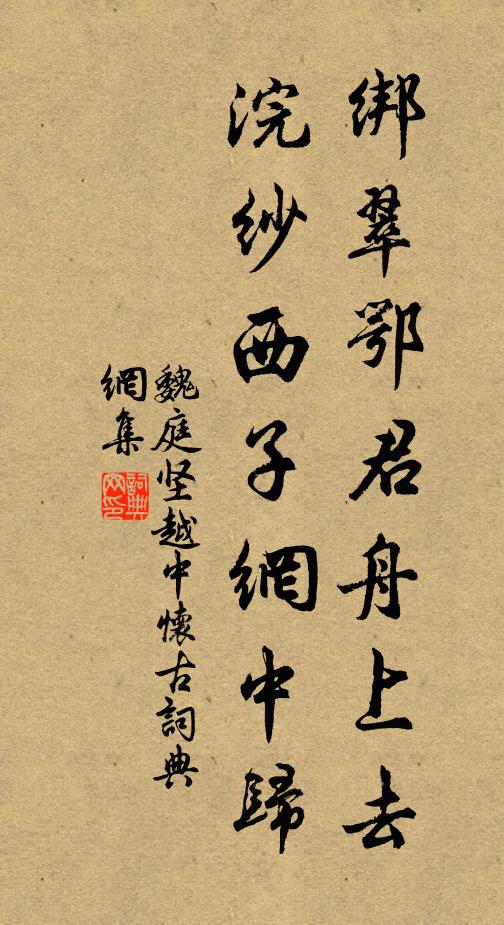 绑翠鄂君舟上去
浣纱西子網中歸
魏庭坚越中懷古詞典
網集
詞典
网印